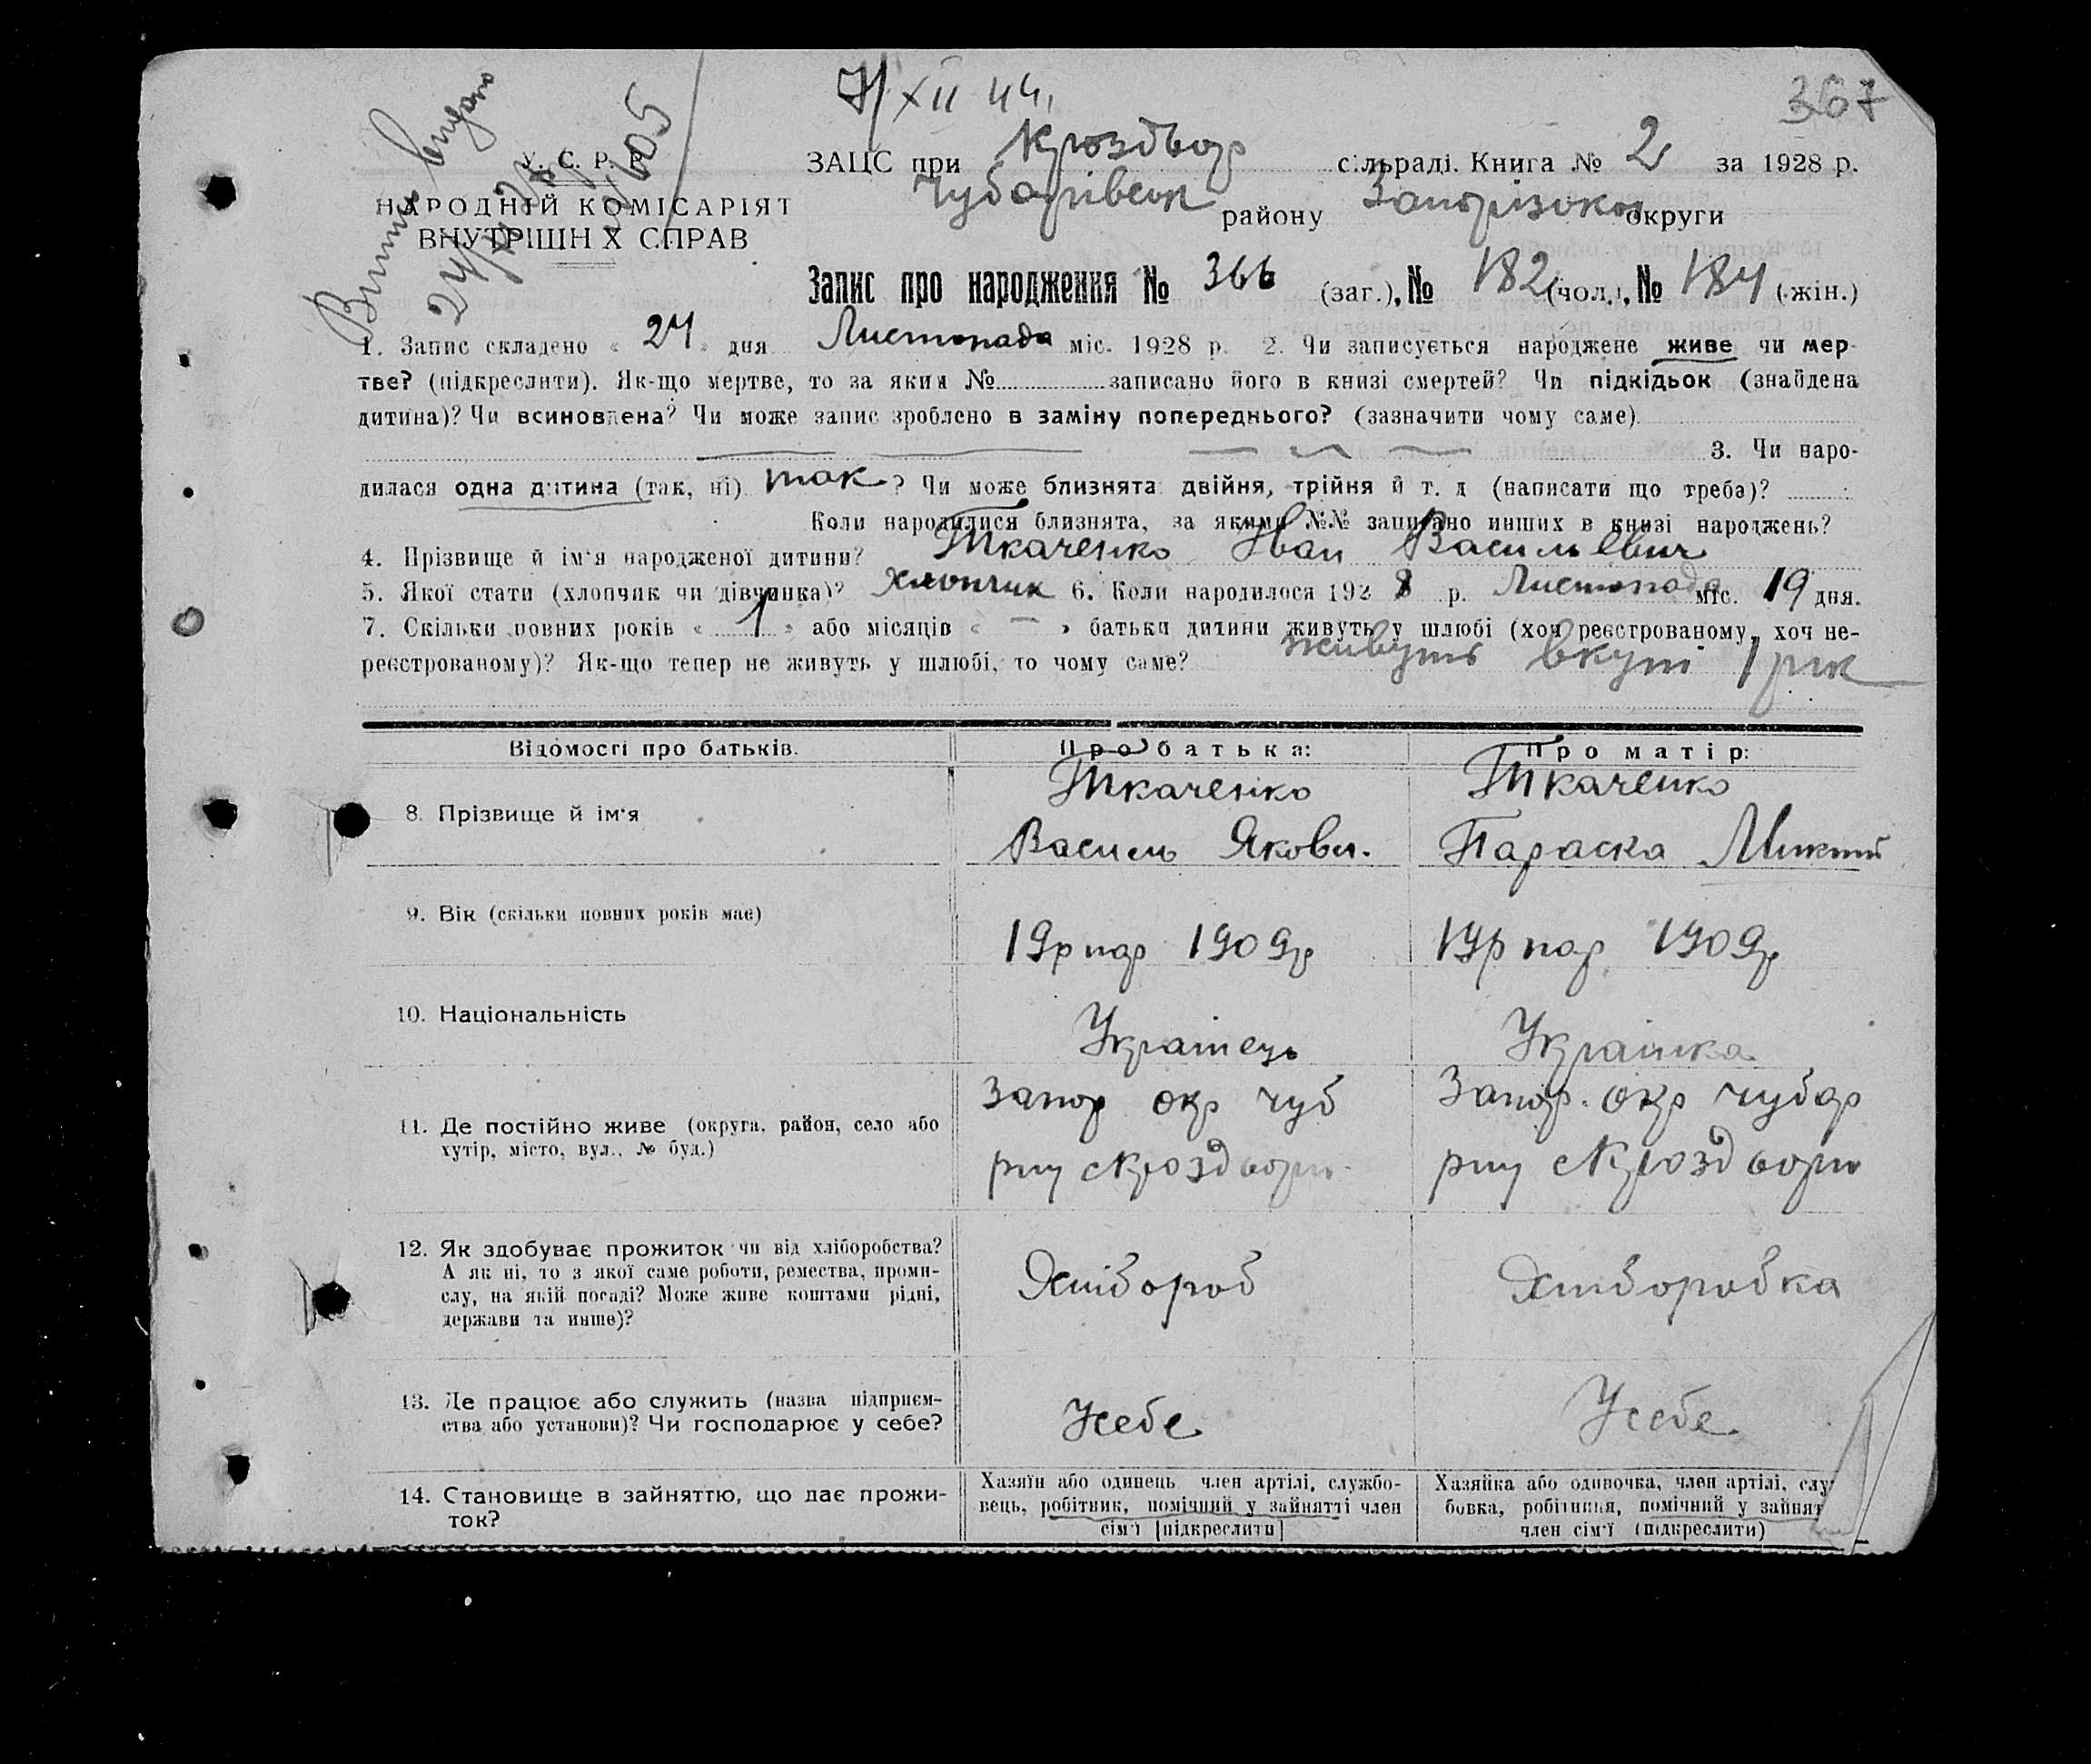 7/XII 44,
367
Виписк видано
У. С. Р. Р.
НАРОДНІЙ КОМІСАРІЯТ
ВНУТРІШН Х СПРАВ
ЗАЦС при Кроздвор сільраді. Книга № 2 за 1928 р.
Чубарівськ району Запорізькоі округи
Запис про народження № 366 (заг.), № 182 (чол.), № 184 (жін.)
1. Запис складено « 24 » дня Листопада міс. 1928 р. 2. Чи записується народжене живе чи мер-
тве? (підкреслити). Як-що мертве, то за яким № записано його в книзі смертей? Чи підкідьок (знайдена
дитина)? Чи всиновлена? Чи може запис зроблено в заміну попереднього? (зазначити чому саме)
3. Чи наро-
дилася одна дитина (так, ні) так? Чи може близнята двійня, трійня й т. д (написати що треба)?
Коли народилися близнята, за якими №№ записано инших в книзі народжень?
4. Прізвище й ім'я народженої дитини? Ткаченко Іван Васильевич
5. Якої стати (хлопчик чи дівчинка)? Хлопчик 6. Коли народилося 192 8 р. Листопада міс. 19 дня.
7. Скільки повних років « 1 » або місяців « — » батьки дитини живуть у шлюбі (хоч реєстрованому, хоч не-
реєстрованому)? Як-що тепер не живуть у шлюбі, то чому саме? живуть вкупі 1 рік
Відомості про батьків.
Про батька:
Про матір:
8. Прізвище й ім'я
Ткаченко
Василь Якович.
Ткаченко
Параска Микит
9. Вік (скільки повних років має)
19р нар 1909р
19р нар 1909р
10. Національність
Украінець
Украінка
11. Де постійно живе (округа, район, село або
хутір, місто, вул., № буд.)
Запор окр чуб
рну с Кроздвори
Запор. окр чубар
рну с Кроздвори
12. Як здобуває прожиток чи від хліборобства?
А як ні, то з якої саме роботи, ремества, проми-
слу, на якій посаді? Може живе коштами рідні,
держави та инше)?
Хлібороб
Хліборобка
13. Де працює або служить (назва підприєм-
ства або установи)? Чи господарює у себе?
Усебе
Усебе
14. Становище в зайняттю, що дає прожи-
ток?
Хазяїн або одинець член артілі, службо-
вець, робітник, помічний у зайнятті член
сім'ї [підкреслити]
Хазяйка або одиночка, член артілі, слу
бовка, робітниця, помічний у зайнят
член сім'ї (підкреслити)